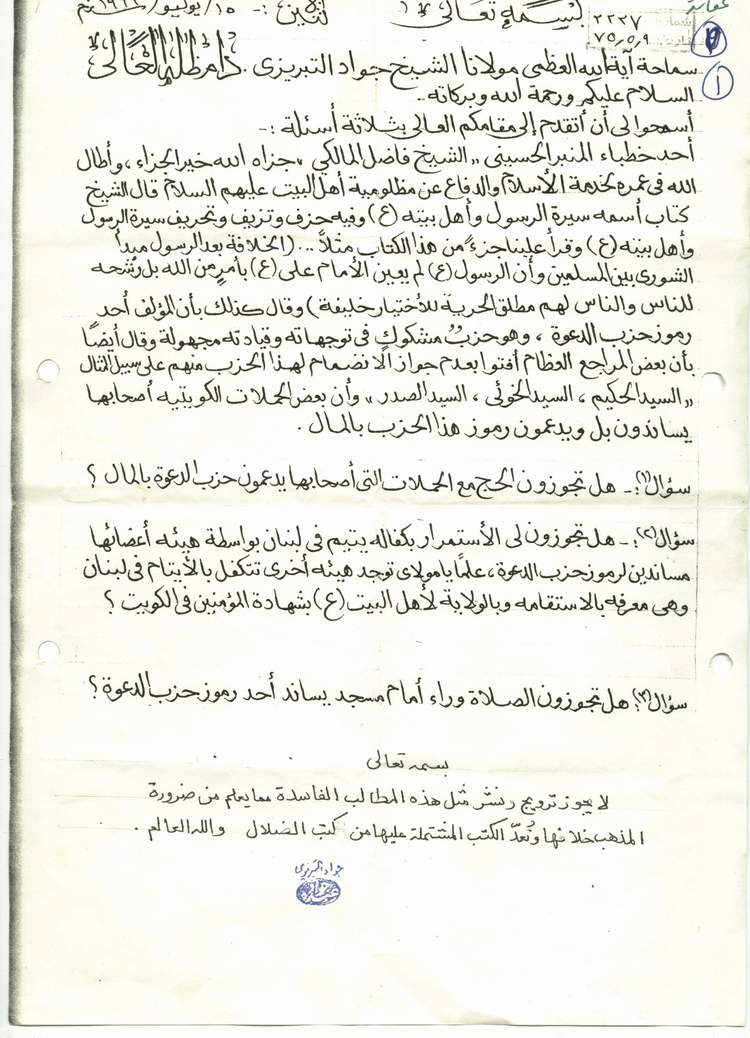 عقاید
بسمه تعالى
التاريخ :- ١٥/يوليو/١٩٩٦م
شماره ٢٢٣٧
تاريخ ٧٥،٥،٩
١
سماحة آية الله العظمى مولانا الشيخ جواد التبريزى . دام ظله العالى
السلام عليكم ورحمة الله وبركاته..
أسمحوا لى أن أتقدم إلى مقامكم العالى بثلاثة أسئلة :-
أحد خطباء المنبر الحسينى ,, الشيخ فاضل المالكي ,, جزاه الله خير الجزاء ، وأطال
الله فى عمره لخدمة الأسلام والدفاع عن مظلومية أهل البيت عليهم السلام قال الشيخ
كتاب أسمه سيرة الرسول وأهل بيته (ع) وفيه حزف وتزيف وتحريف سيرة الرسول
وأهل بيته (ع) وقرأ علينا جزءً من هذا الكتاب مثلاً ... (الخلافة بعد الرسول مبدأ
الشورى بين المسلمين وأن الرسول (ع) لم يعين الأمام على (ع) بأمرٍ من الله بل رشحه
للناس والناس لهم مطلق الحرية للأختيار خليفة) وقال كذلك بأن المؤلف أحد
رموز حزب الدعوة ، وهو حزبٌ مشكوك فى توجهاته وقيادته مجهولة وقال أيضًا
بأن بعض المراجع العظام أفتوا بعدم جواز الانضمام لهذا الحزب منهم على سبيل المثال
,, السيد الحكيم ، السيد الخوئى ، السيد الصدر ,, وأن بعض الحملات الكويتيه أصحابها
يساندون بل ويدعمون رموز هذا الحزب بالمال .
سؤال (١) :- هل تجوزون الحج مع الحملات التى أصحابها يدعمون حزب الدعوة بالمال ؟
سؤال (٢) :- هل تجوزون لى الأستمرار بكفاله يتيم فى لبنان بواسطة هيئه أعضائها
مساندين لرموز حزب الدعوة ، علمًا يا مولاى توجد هيئه أخرى تتكفل بالأيتام فى لبنان
وهى معرفه بالاستقامه وبالولاية لأهل البيت (ع) بشهادة المؤمنين فى الكويت ؟
سؤال (٣) : هل تجوزون الصلاة وراء أمام مسجد يساند أحد رموز حزب الدعوة ؟
بسمه تعالى
لا يجوز ترويج ونشر مثل هذه المطالب الفاسدة مما يعلم من ضرورة
المذهب خلافها وتُعدّ الكتب المشتملة عليها من كتب الضلال والله العالم .
جواد التبريزى